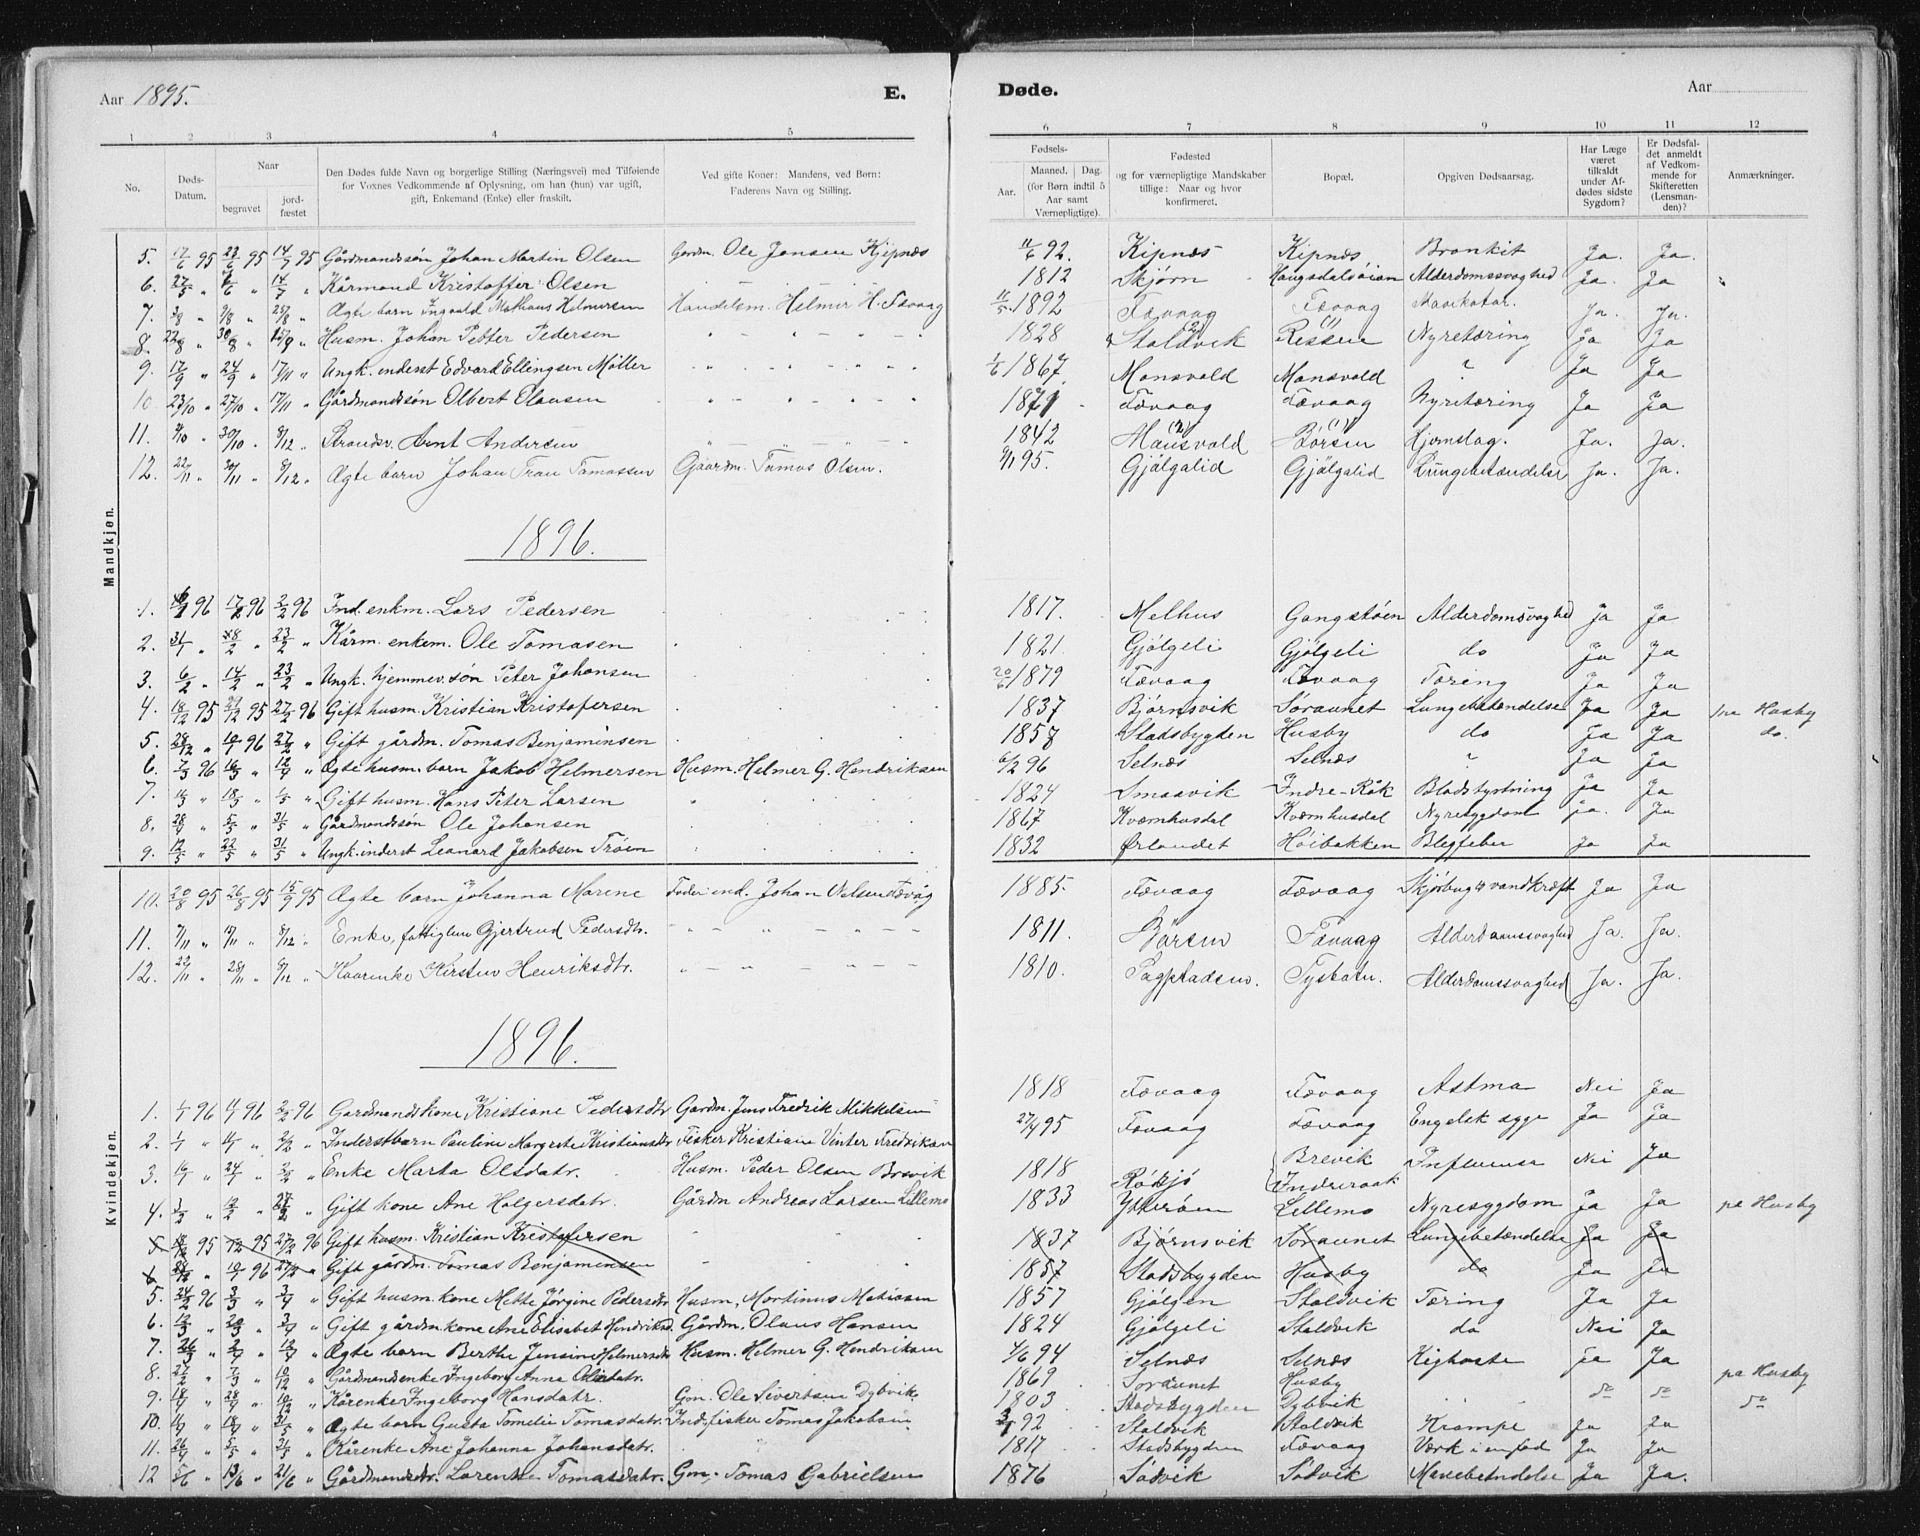 Aar 1895. E. Døde. Aar
1 2 3 4 5 6 7 8 9 10 11 12
No. Døds-Datum. Naar begravet jord-fæstet Den Dødes fulde Navn og borgerlige Stilling (Næringsvei) med Tilføiende for Voxnes Vedkommende af Oplysning, om han (hun) var ugift, gift, Enkemand (Enke) eller fraskilt. Ved gifte Koner: Mandens, ved Børn: Faderens Navn og Stilling. Fødsels- Aar. Maaned. Dag. (for Børn indtil 5 Aar samt Værnepligtige). Fødested og for værnepligtige Mandskaber tillige: Naar og hvor konfirmeret. Bopæl. Opgiven Dødsaarsag. Har Læge været tilkaldt under Afdødes sidste Sygdom? Er Dødsfaldet anmeldt af Vedkommende for Skifteretten (Lensmanden)? Anmærkninger.
Mandkjøn.
5. 17/6 95 23/6 95 14/7 95 Gårdmandssøn Johan Martin Olsen Gardm. Ole Jensen Kjipnæs 11/6 92. Kipnæs Kipnæs Bronkit Ja. Ja.
6. 27/5 " 6/6 " 14/7 " Kårmand Kristoffer Olsen 1812 Skjørn Haugsdalsøian Alderdomssvaghed Ja. Ja
7. 3/8 " 9/8 " 25/8 " Ægte barn Ingvald Mathæus Helmersen Handelsm. Helmer H. Fævaag 11/5 1892 Fævaag Fævaag Ja. Ja.
8. 22/8 " 30/8 " 15/9 " Husm. Johan Petter Pedersen 1828 Staldvik Rissen Nyretæring Ja Ja
9. 17/9 " 24/9 " 17/11 " Ungk. inderst Edvard Ellingsen Møller 1/6 1867 Mansvold Mansvold " Ja Ja
10 23/10 " 27/10 " 17/11 " Gårdmandssøn Olbert Olausen 1871 Fævaag Fævaag Nyretæring Ja Ja
11. 9/10 " 30/10 " 8/12 " Strandsr. Arnt Andersen 1842 Mansvold Børsen Hjerneslag. Ja. Ja.
12. 22/11 " 30/11 " 8/12 " Ægte barn Johan Tomassen Gjaardm. Tomas Olsen. 9/11 95. Gjølgalid Gjølgalid Lungebetændelse Ja. Ja.
1896.
1. 6/2 96 17/2 96 2/2 96 Ind. enkm. Lars Pedersen 1817. Melhus Gangstøen Alderdomsvaghed Ja Ja
2. 31/1 " 8/2 " 23/2 " Kårm. enkem. Ole Tomasen 1821 Gjølgeli Gjølgeli do Ja Ja
3. 6/2 " 14/2 " 23/2 " Ungk. hjemmev. søn Peter Johansen 20/6 1879 Fævaag Fævaag Tæring Ja Ja
4. 18/12 95 29/12 95 27/2 96 Gift husm. Kristian Kristofersen 1837 Bjørnsvik Søraunet Lungebetændelse Ja Ja pa Husby
5. 28/12 " 10/1 96 27/2 " Gift gårdm. Tomas Benjaminsen 1858 Stadsbygden Husby do Ja Ja do.
6. 7/3 96 16/3 " 12/4 " Ægte husm. barn Jakob Helmersen Husm. Helmer G. Hendriksen 6/2 96 Selnæs Selnæs " Ja Ja
7. 11/3 " 18/3 " 1/5 " Gift husm. Hans Peter Larsen 1824 Smaavik Indre-Råk Blodstyrtning Ja Ja
8. 28/4 " 5/5 " 31/5 " Gårdmandssøn Ole Johansen 1867 Kværnhusdal Kværnhusdal Nyresygdom Ja. Ja
9. 12/5 " 22/5 " 31/5 " Ungk. inderst Leonard Jakobsen Trøen 1832 Ørlandet Høibakken Blegfeber Ja Ja
Kvindekjøn.
10. 20/8 95 26/8 95 15/9 95 Ægte barn Johanna Marene Fader ind. Johan Nilsen Fævåg 1885. Fævaag Fævaag Skjørbug og vandkræft Ja Ja
11. 9/11 " 17/11 " 8/12 " Enke, fattiglem Gjertrud Pedersdtr. 1811. Børsen Fævaag Alderdomssvaghed Ja. Ja.
12. 22/11 " 28/11 " 8/12 " Kaarenke Kirsten Henriksdtr. 1810. Alderdomssvaghed Ja. Ja.
1896.
1. 1/1 96 11/1 96 2/2 96 Gardmandskone Kristiane Pedersdtr Gardm. Jens Fredrik Mikkelsen 1818 Fævaag Fævaag Astma Nei Ja
2. 1/1 " 11/1 " 2/2 " Inderstbarn Pauline Margrete Kristiansdtr Fisker Kristian Vinter Fredriksen 27/4 95 Fævaag Fævaag Engelsk syge Ja Ja
3. 16/1 " 24/1 " 2/2 " Enke Marta Olsdatr. Husm. Peder Olsen Brevik 1818 Rødsjø Brevik Indreraak Influensa Nei Ja
4. 3/2 " 12/2 " 27/2 " Gift kone Ane Holgersdatr. Gårdm Andreas Larsen Lillemo 1833 Ytterøen Lillemo Nyresygdom Ja Ja pa Husby
5 18/12 95 12 95 27/2 96 Gift husm. Kristian Kristofersen 1837 Bjørnsvik Søraunet Lungebetændelse Ja Ja
6 28/12 " 10/1 96 27/2 " Gift gårdm. Tomas Benjaminsen 1857 Stadsbygden Husby do Ja Ja
5. 24/2 96 3/3 " 3/4 " Gift husm. kone Mette Jørgine Pedersdtr Husm. Martinus Matiasen 1857 Gjølgen Staldvik Tæring Ja Ja
6. 12/3 " 20/3 " 3/4 " Gift gårdm. kone Ane Elisabet Hendriksd. Gårdm. Olaus Hansen 1824 Gjølgeli Staldvik do Nei Ja
7. 26/3 " 2/4 " 12/4 " Ægte barn Berthe Jensine Helmersdtr Husm. Helmer G. Hendriksen 4/6 94 Selnæs Selnæs Kighoste Ja Ja
8. 27/2 " 7/3 " 10/12 " Gårdmandsenke Ingeborg Anna Olsdatr. 1869 Søraunet Husby pa Husby
9. 18/4 " 28/4 " 10/12 " Kårenke Ingeborg Hansdatr. Gm. Ole Sivertsen Dybvik 1803 Stadsbygden Dybvik do do do
10. 11/4 " 18/4 " 31/5 " Ægte barn Gusta Tomelie Tomasdatr. Ind. fisker Tomas Jakobsen 92 Staldvik Staldvik Krampe Ja Ja
11. 26/4 " 5/5 " 31/5 " Kårenke Ane Johanna Johansdatr. 1817 Stadsbygden Fævaag Værk i en fod Ja Ja
12 5/6 " 13/6 " 21/6 " Gårdmandsdtr. Lorentse Tomasdatr. Gm. Tomas Gabrielsen 1876 Sødvik Sødvik Mavebetndelse Ja Ja.